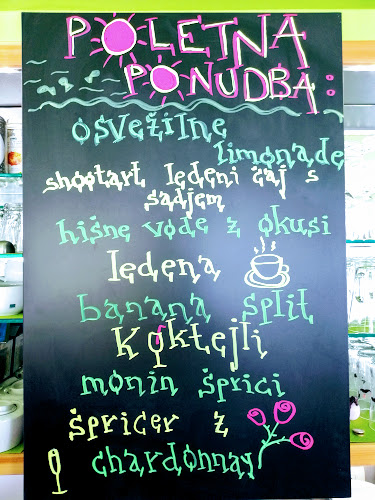 POLETNA
PONUDBA:
osvežilne
limonade
shootart ledeni čaj s
sadjem
hišne vode z okusi
ledena
banana split
Koktejli
monin šprici
špricer z
chardonnay